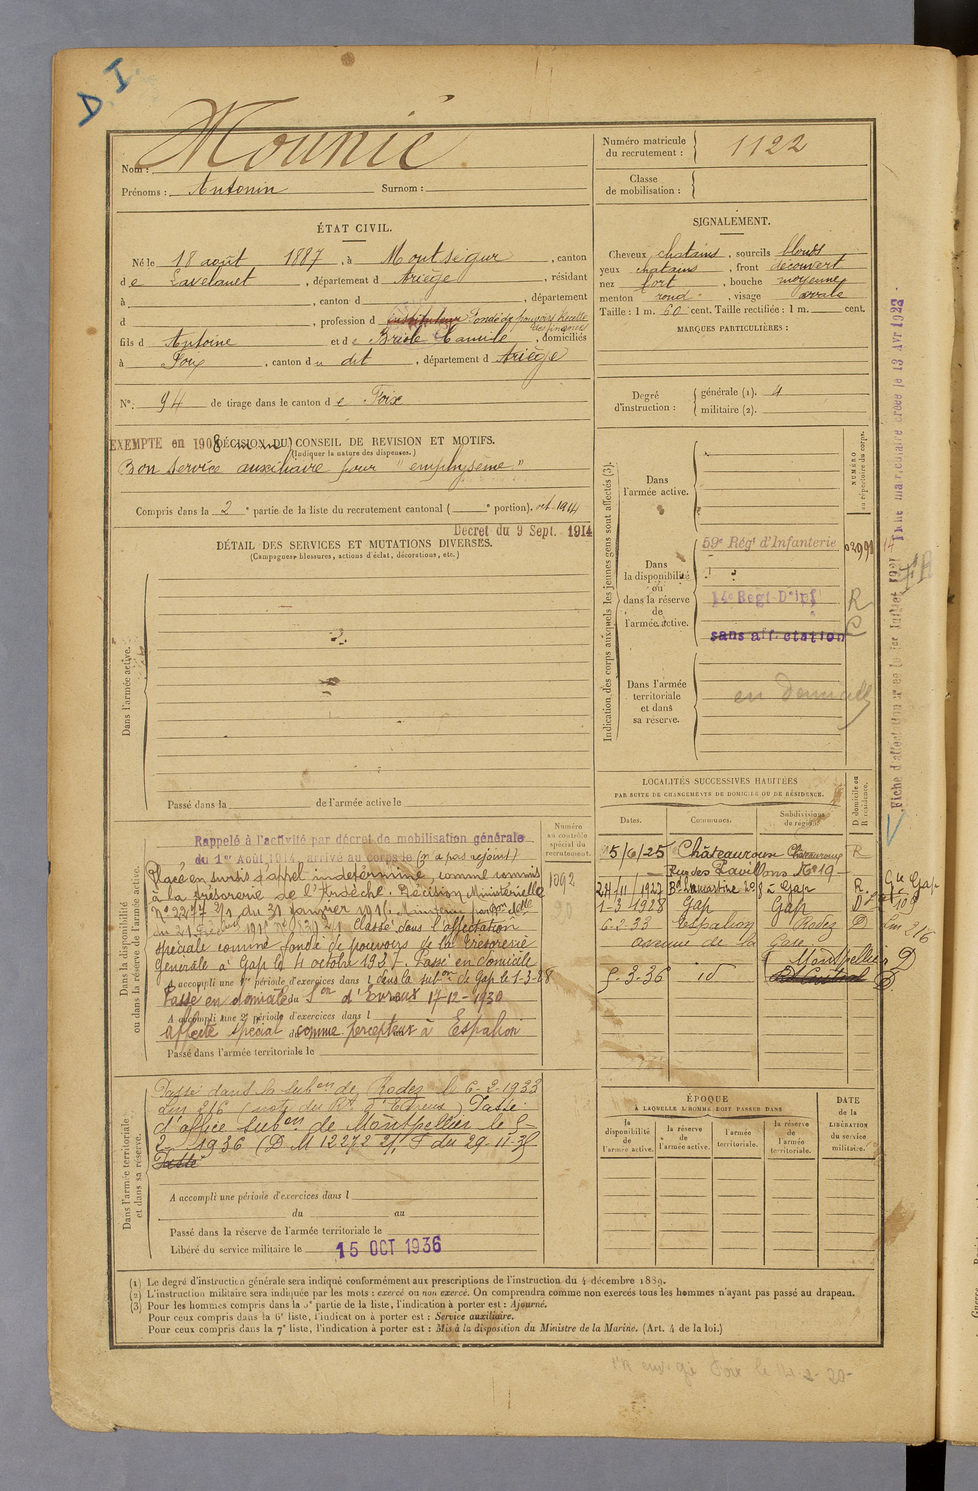 D. I.
Nom : Mounié
Prénoms : Antonin Surnom :
Numéro matricule du recrutement : 1122
Classe de mobilisation :
ÉTAT CIVIL.
Né le 18 août 1887, à Montségur, canton
de Lavelanet, département d Ariège, résidant
à , canton d , département
d , profession d Instituteur Fondé de pouvoirs Recette des finances
fils d Antoine et de Briole Camille, domiciliés
à Foix, canton du dit, département d Ariège
N° : 94 de tirage dans le canton de Foix
SIGNALEMENT.
Cheveux chatains, sourcils blonds
yeux chatains, front découvert
nez fort, bouche moyenne
menton rond, visage ovale
Taille : 1 m. 60 cent. Taille rectifiée : 1 m. cent.
MARQUES PARTICULIÈRES :
Degré d'instruction : générale (1). 4
militaire (2).
EXEMPTE en 1908 DÉCISION DU CONSEIL DE REVISION ET MOTIFS.
(Indiquer la nature des dispenses.)
Bon service auxiliaire pour "emphysème"
Compris dans la 2e partie de la liste du recrutement cantonal ( e portion). oct. 1914
Décret du 9 Sept. 1914
DÉTAIL DES SERVICES ET MUTATIONS DIVERSES.
(Campagnes, blessures, actions d'éclat, décorations, etc.)
Dans l'armée active.
Passé dans la de l'armée active le
Indication des corps auxquels les jeunes gens sont affectés (3).
NUMÉRO au répertoire du corps.
Dans l'armée active.
Dans la disponibilité ou dans la réserve de l'armée active.
59e Régt d'Infanterie
14e Regt D'inf
sans affectation
R
Dans l'armée territoriale et dans sa réserve.
LOCALITÉS SUCCESSIVES HABITÉES
PAR SUITE DE CHANGEMENTS DE DOMICILE OU DE RÉSIDENCE.
Dates. Communes. Subdivisions de région. D domicile ou R résidence.
5/6/25 Châteauroux Chateauroux R
Rue des Pavillons No 19
24/11/1927 Bd Lamartine 20 à Gap R.
1-3-1928 Gap Gap D
6-2-33 Espalion Rodez D
avenue de la Gare
5-3-36 id Montpellier D
Numéro au contrôle spécial du recrutement.
1092
Dans la disponibilité ou dans la réserve de l'armée active.
Rappelé à l'activité par décret de mobilisation générale
du 1er Août 1914, arrivé au corps le (n'a pas rejoint)
Placé en sursis d'appel indéterminé, comme commis
à la trésorerie de l'Ardèche. Décision Ministérielle
Classé dans l'affectation
spéciale comme fondé de pouvoirs de la Trésorerie
Générale à Gap le 4 octobre 1927. Passé en domicile
A accompli une 1re période d'exercices dans l dans la subon de Gap le 1-3-28
Passé en domicile Son d'Evreux 17-12-1930
A accompli une 2e période d'exercices dans l
Affecté spécial comme percepteur à Espalion
Passé dans l'armée territoriale le
Dans l'armée territoriale et dans sa réserve.
Passé dans la Suben de Rodez le 6-2-1933
Passé
d'office Suben de Montpellier le 5-
2 1936 (D M 12272 du 29-11-35
Passé
A accompli une période d'exercices dans l
du au
Passé dans la réserve de l'armée territoriale le
Libéré du service militaire le 15 OCT 1936
ÉPOQUE
A LAQUELLE L'HOMME DOIT PASSER DANS
la disponibilité de l'armée active. la réserve de l'armée active. l'armée territoriale. la réserve de l'armée territoriale.
DATE de la LIBÉRATION du service militaire.
(1) Le degré d'instruction générale sera indiqué conformément aux prescriptions de l'instruction du 4 décembre 1889.
(2) L'instruction militaire sera indiquée par les mots : exercé ou non exercé. On comprendra comme non exercés tous les hommes n'ayant pas passé au drapeau.
(3) Pour les hommes compris dans la 5e partie de la liste, l'indication à porter est : Ajourné.
Pour ceux compris dans la 6e liste, l'indication à porter est : Service auxiliaire.
Pour ceux compris dans la 7e liste, l'indication à porter est : Mis à la disposition du Ministre de la Marine. (Art. 4 de la loi.)